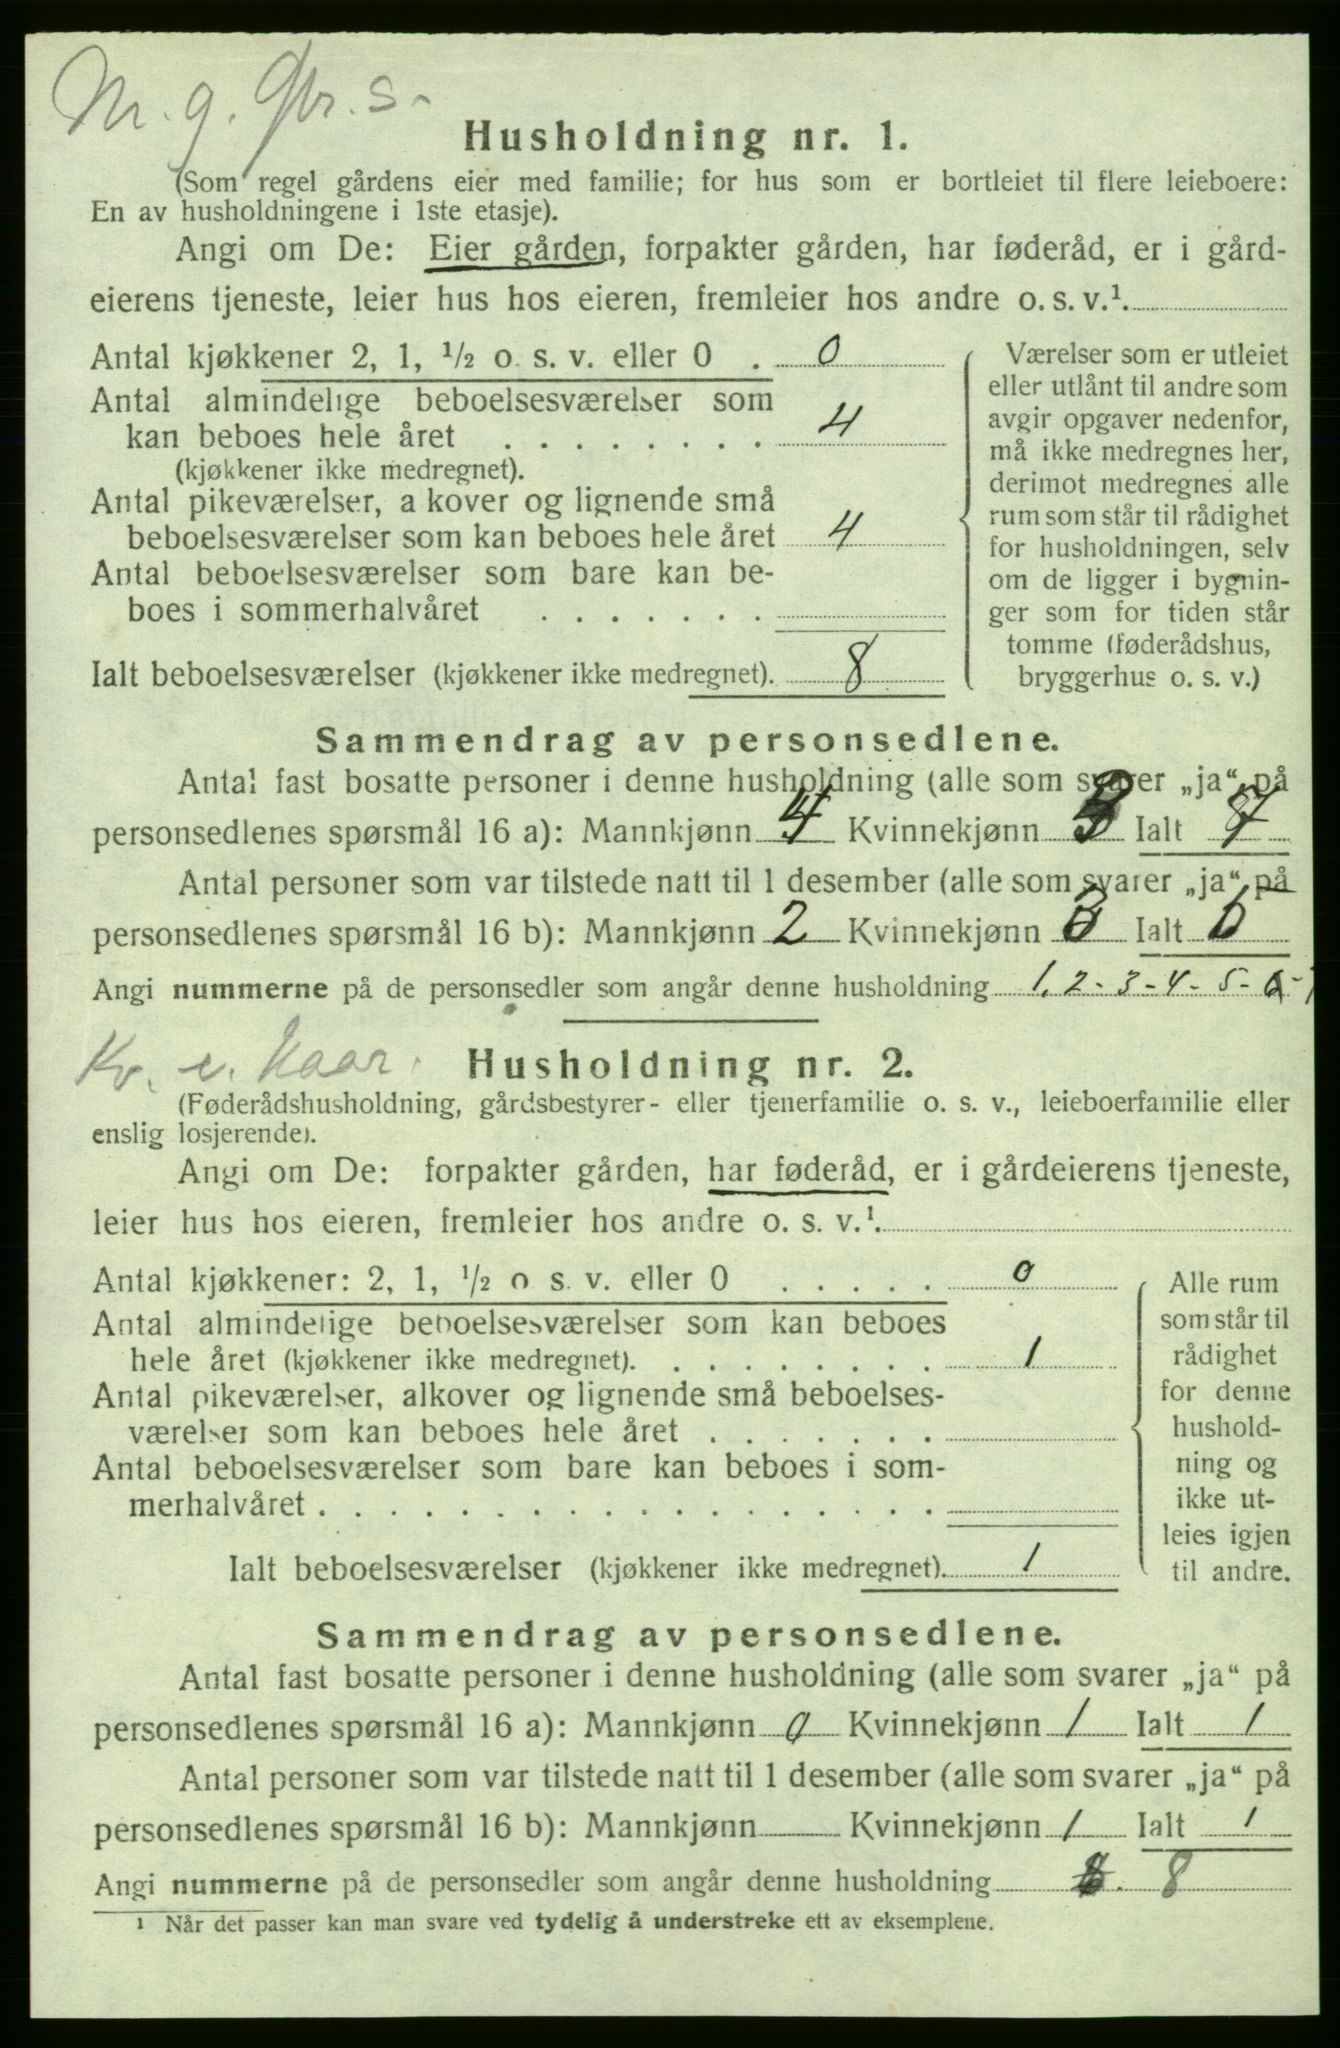 M. g. Gbr. s.
Husholdning nr. 1.
(Som regel gårdens eier med familie; for hus som er bortleiet til flere leieboere:
En av husholdningene i 1ste etasje).
Angi om De: Eier gården, forpakter gården, har føderåd, er i gård-
eierens tjeneste, leier hus hos eieren, fremleier hos andre o. s. v.¹.
Antal kjøkkener 2, 1, ½ o. s. v. eller 0 . 0
Antal almindelige beboelsesværelser som
kan beboes hele året . . . . . . . . 4
(kjøkkener ikke medregnet).
Antal pikeværelser, a kover og lignende små
beboelsesværelser som kan beboes hele året 4
Antal beboelsesværelser som bare kan be-
boes i sommerhalvåret . . . . . . .
Ialt beboelsesværelser (kjøkkener ikke medregnet). 8
Værelser som er utleiet
eller utlånt til andre som
avgir opgaver nedenfor,
må ikke medregnes her,
derimot medregnes alle
rum som står til rådighet
for husholdningen, selv
om de ligger i bygnin-
ger som for tiden står
tomme (føderådshus,
bryggerhus o. s. v.)
Sammendrag av personsedlene.
Antal fast bosatte personer i denne husholdning (alle som svarer „ja“ på
personsedlenes spørsmål 16 a): Mannkjønn 4 Kvinnekjønn 3 Ialt 7
Antal personer som var tilstede natt til 1 desember (alle som svarer „ja“ på
personsedlenes spørsmål 16 b): Mannkjønn 2 Kvinnekjønn 3 Ialt 6
Angi nummerne på de personsedler som angår denne husholdning 1, 2 - 3 - 4 - 5 - 6 - 7
Kv. e. kaar.
Husholdning nr. 2.
(Føderådshusholdning, gårdsbestyrer- eller tjenerfamilie o. s. v., leieboerfamilie eller
enslig losjerende).
Angi om De: forpakter gården, har føderåd, er i gårdeierens tjeneste,
leier hus hos eieren, fremleier hos andre o. s. v.¹.
Antal kjøkkener: 2, 1, ½ o. s. v. eller 0 . . . . . 0
Antal almindelige beboelsesværelser som kan beboes
hele året (kjøkkener ikke medregnet). . . . . . . . . 1
Antal pikeværelser, alkover og lignende små beboelses-
værelser som kan beboes hele året . . . . . . .
Antal beboelsesværelser som bare kan beboes i som-
merhalvåret . . . . . . . . . . . . . . . . . .
Ialt beboelsesværelser (kjøkkener ikke medregnet). 1
Alle rum
som står til
rådighet
for denne
hushold-
ning og
ikke ut-
leies igjen
til andre.
Sammendrag av personsedlene.
Antal fast bosatte personer i denne husholdning (alle som svarer „ja“ på
personsedlenes spørsmål 16 a): Mannkjønn 0 Kvinnekjønn 1 Ialt 1
Antal personer som var tilstede natt til 1 desember (alle som svarer „ja“ på
personsedlenes spørsmål 16 b): Mannkjønn Kvinnekjønn 1 Ialt 1
Angi nummerne på de personsedler som angår denne husholdning 8
¹ Når det passer kan man svare ved tydelig å understreke ett av eksemplene.